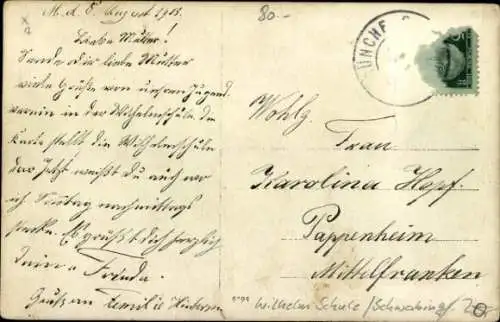 M. d. 8. August 1913.
80.-
Liebe Mutter!
Sende Dir liebe Mutter
viele Grüße von unsren Jugend
verein in der Wilhelmschule. Die
Karte stellt die Wilhelmschule
dar. Jetzt weißt Du auch wo
ich Sonntag nachmittags
stecke. Es grüßt Dich herzlich
Deine Frieda.
Gruß an Familie
MÜNCHE
Wohlg.
Frau
Karolina Hopf.
Pappenheim
Mittelfranken
Wilhelm Schule / Schwabing